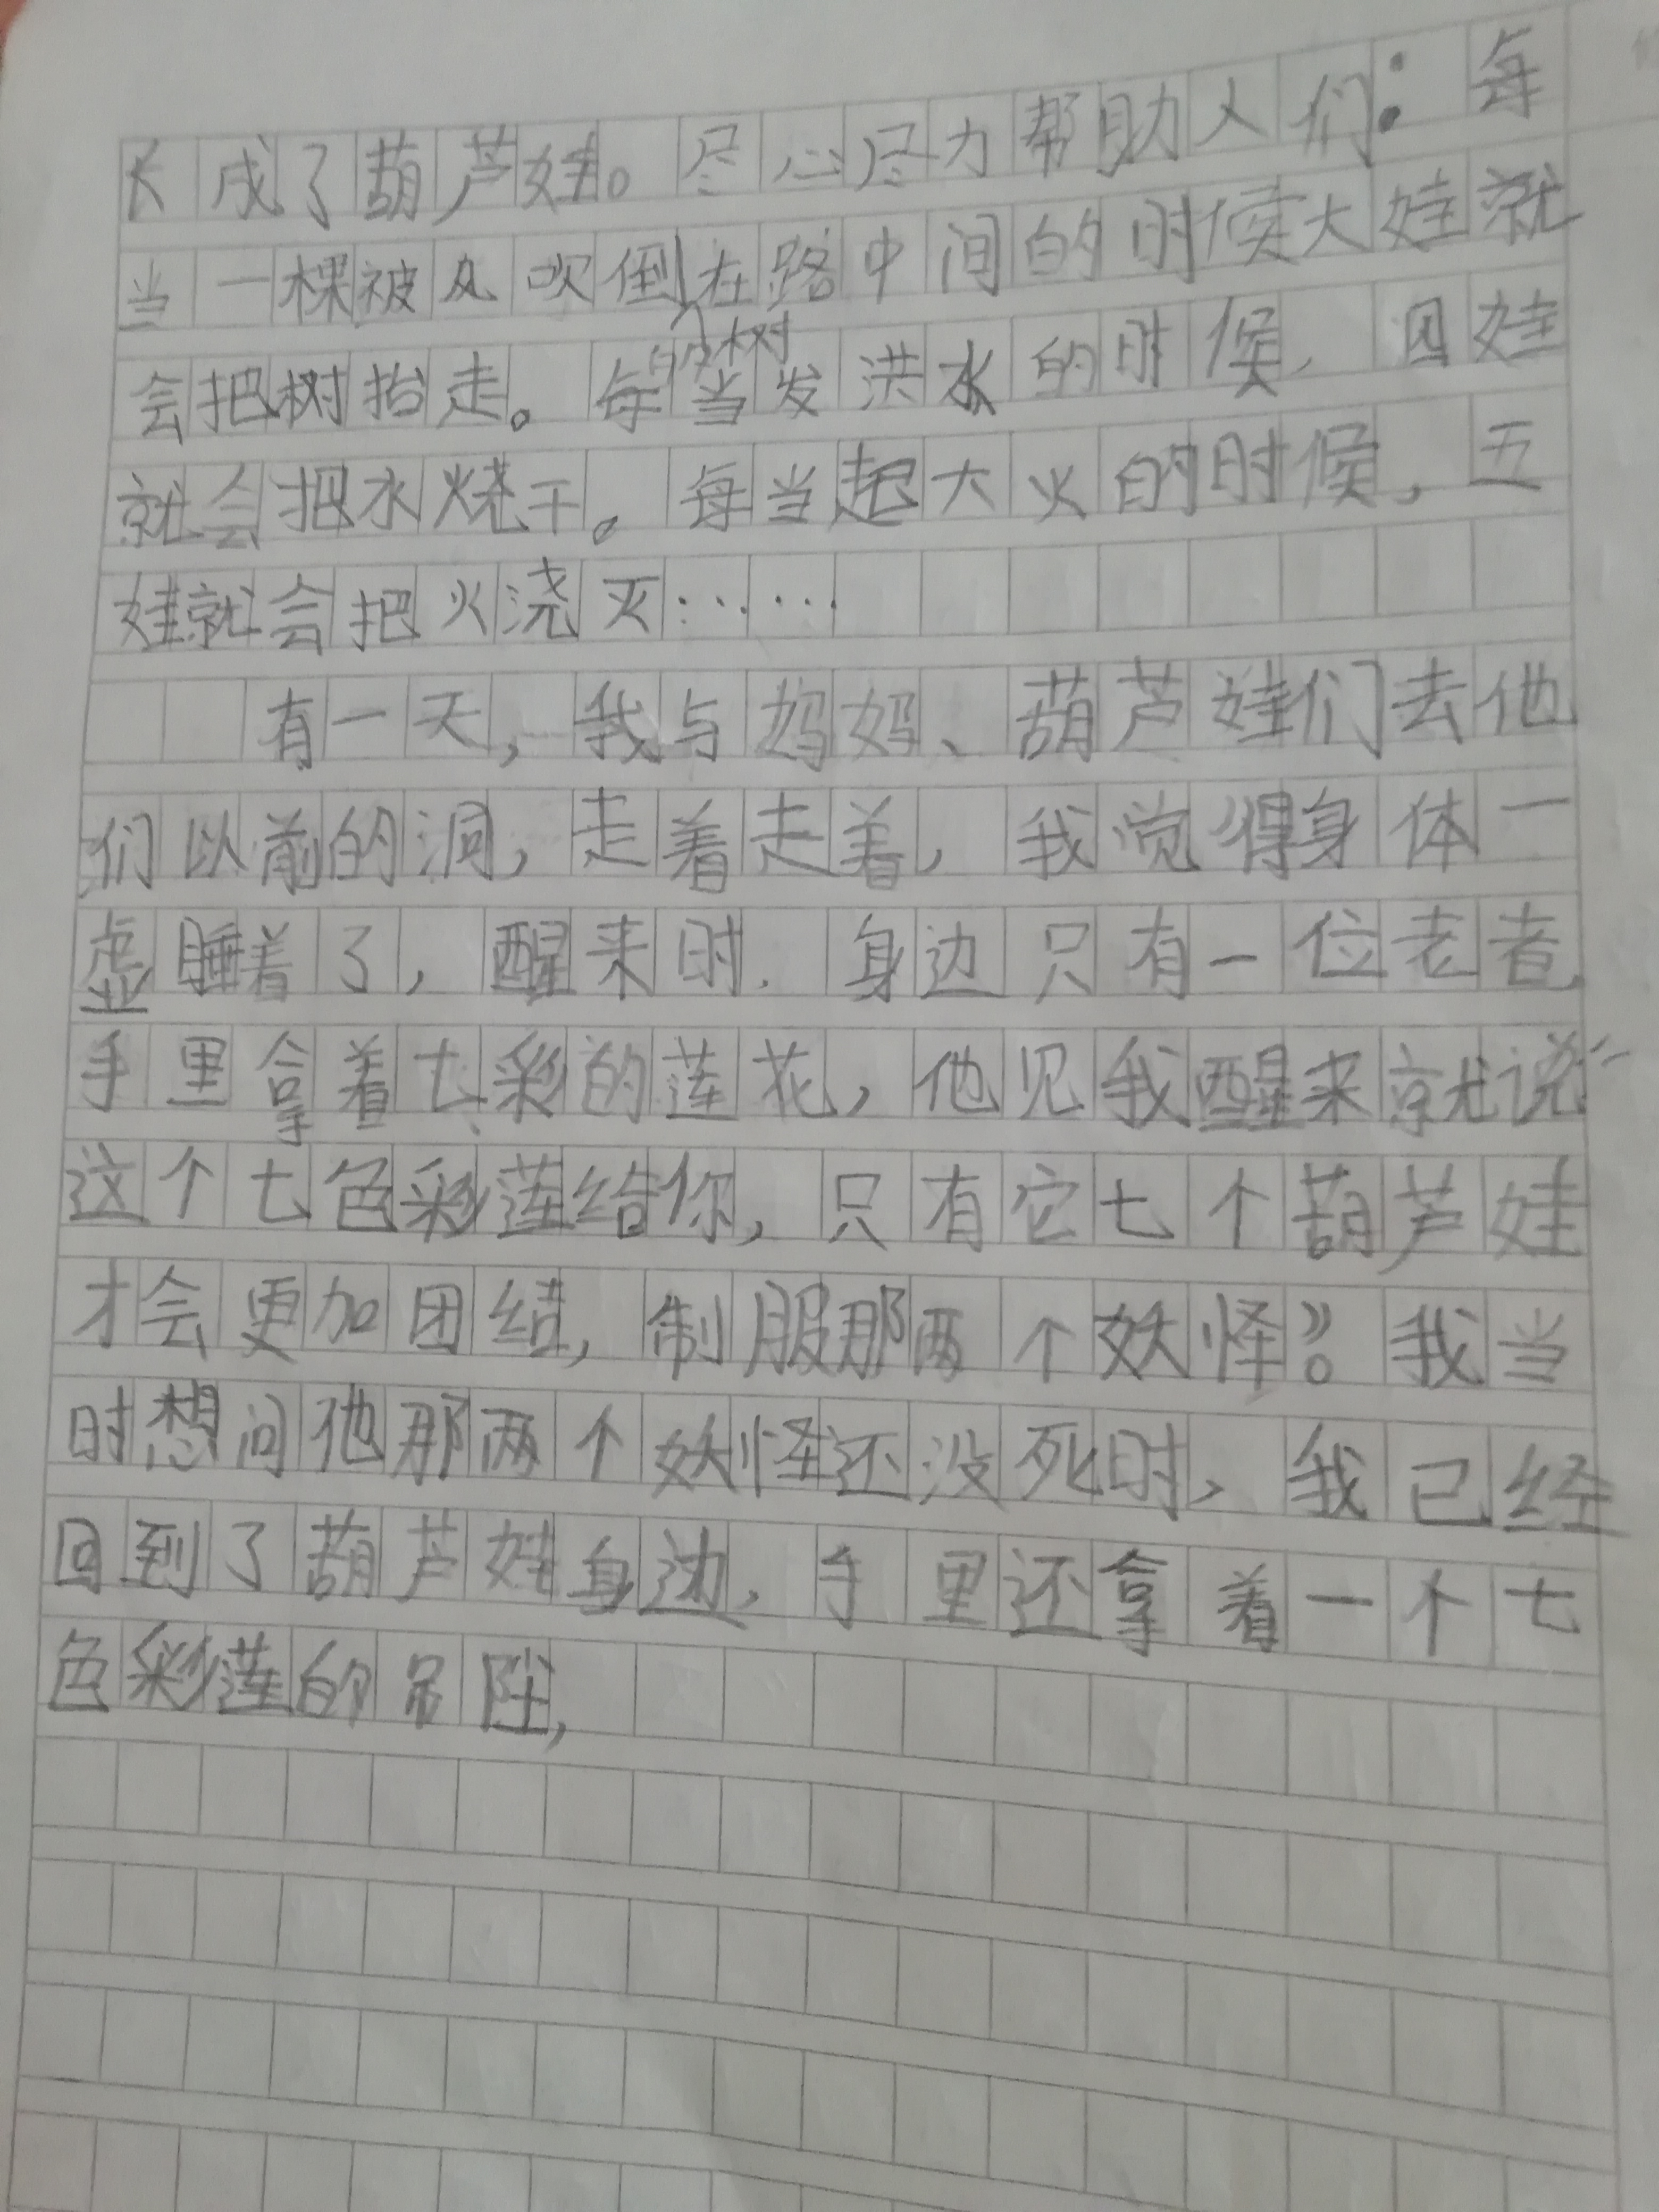 长成了葫芦娃。尽心尽力帮助人们：每
当一棵被风吹倒在路中间的时候大娃就
的树
会把树抬走。每当发洪水的时候，四娃
就会把水烧干。每当起大火的时候，五
娃就会把火浇灭……
有一天，我与妈妈、葫芦娃们去他
们以前的洞，走着走着，我觉得身体一
虚睡着了，醒来时，身边只有一位老者，
手里拿着七彩的莲花，他见我醒来就说“
这个七色彩莲给你，只有它七个葫芦娃
才会更加团结，制服那两个妖怪”。我当
时想问他那两个妖怪还没死时，我已经
回到了葫芦娃身边，手里还拿着一个七
色彩莲的吊坠，